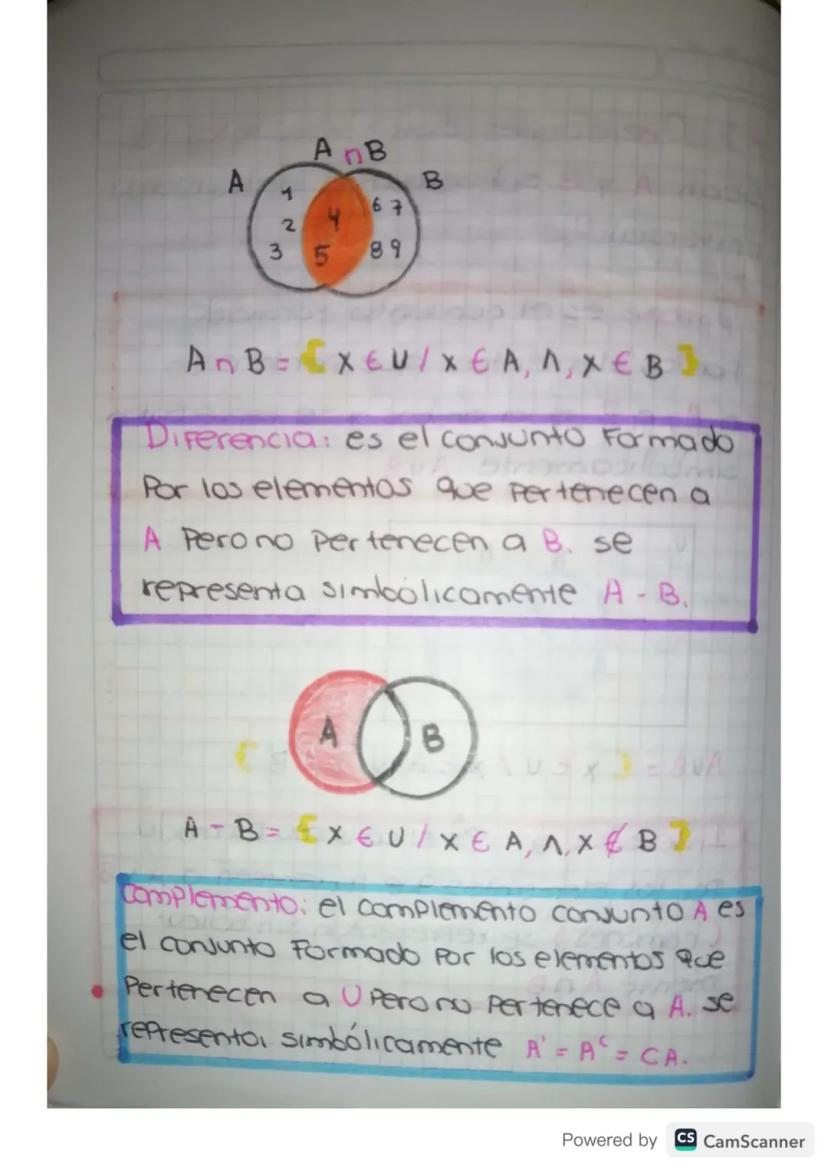 A ∩ B
A
B
1
2
3
4
5
6 7
8 9
A ∩ B = { x ∈ U / x ∈ A, ∧, x ∈ B }
Diferencia: es el conjunto formado
por los elementos que pertenecen a
A pero no pertenecen a B. se
representa simbólicamente A - B.
A
B
A - B = { x ∈ U / x ∈ A, ∧, x ∉ B }
complemento: el complemento conjunto A es
el conjunto formado por los elementos que
pertenecen a U pero no pertenece a A. se
representa simbólicamente A' = Aᶜ = CA.
Powered by CS CamScanner